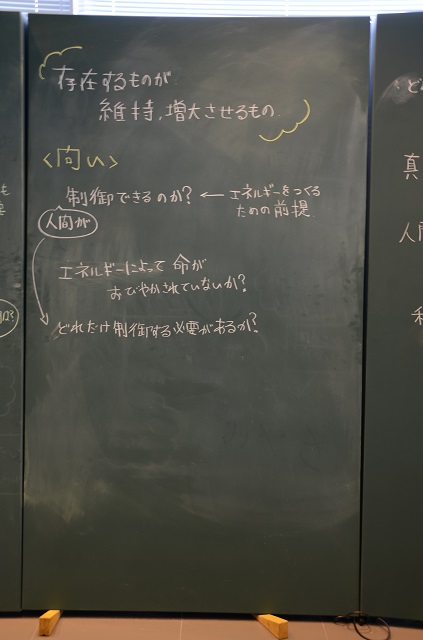 存在するものが
維持、増大させるもの
<向い>
制御できるのか? ← エネルギーをつくる
ための前提
人間が
エネルギーによって 命が
おびやかされていないか?
どれだけ制御する必要があるか?
真
人